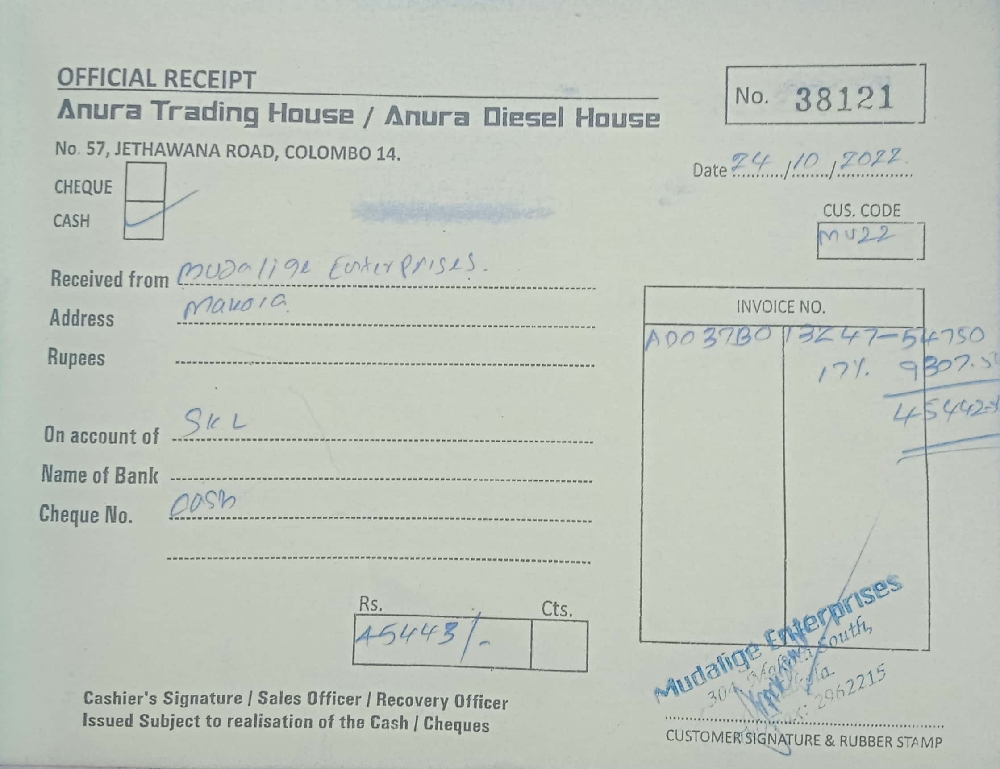 OFFICIAL RECEIPT
Anura Trading House / Anura Diesel House
No. 38121
No. 57, JETHAWANA ROAD, COLOMBO 14.
Date 24/10/2022.
CHEQUE
CASH
CUS. CODE
MU22
Received from Mudalige Enterprises.
Address Makola
Rupees
INVOICE NO.
13247-54750
17% 9307.5
On account of SKL
Name of Bank
Cheque No. cash
Rs. Cts.
45443/-
Mudalige Enterprises
304, Makola South,
2962215
Cashier's Signature / Sales Officer / Recovery Officer
Issued Subject to realisation of the Cash / Cheques
CUSTOMER SIGNATURE & RUBBER STAMP